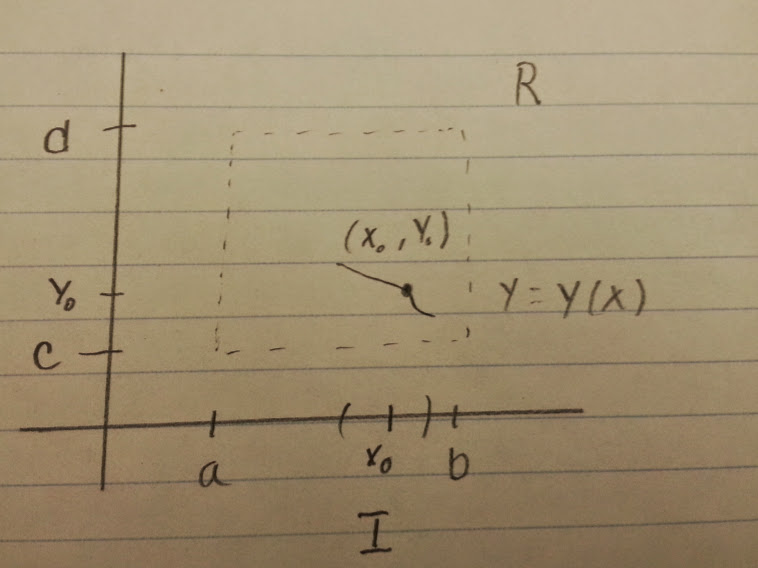 R
d
(x₀, y₀)
y₀
y = y(x)
c
( )
x₀
a
b
I